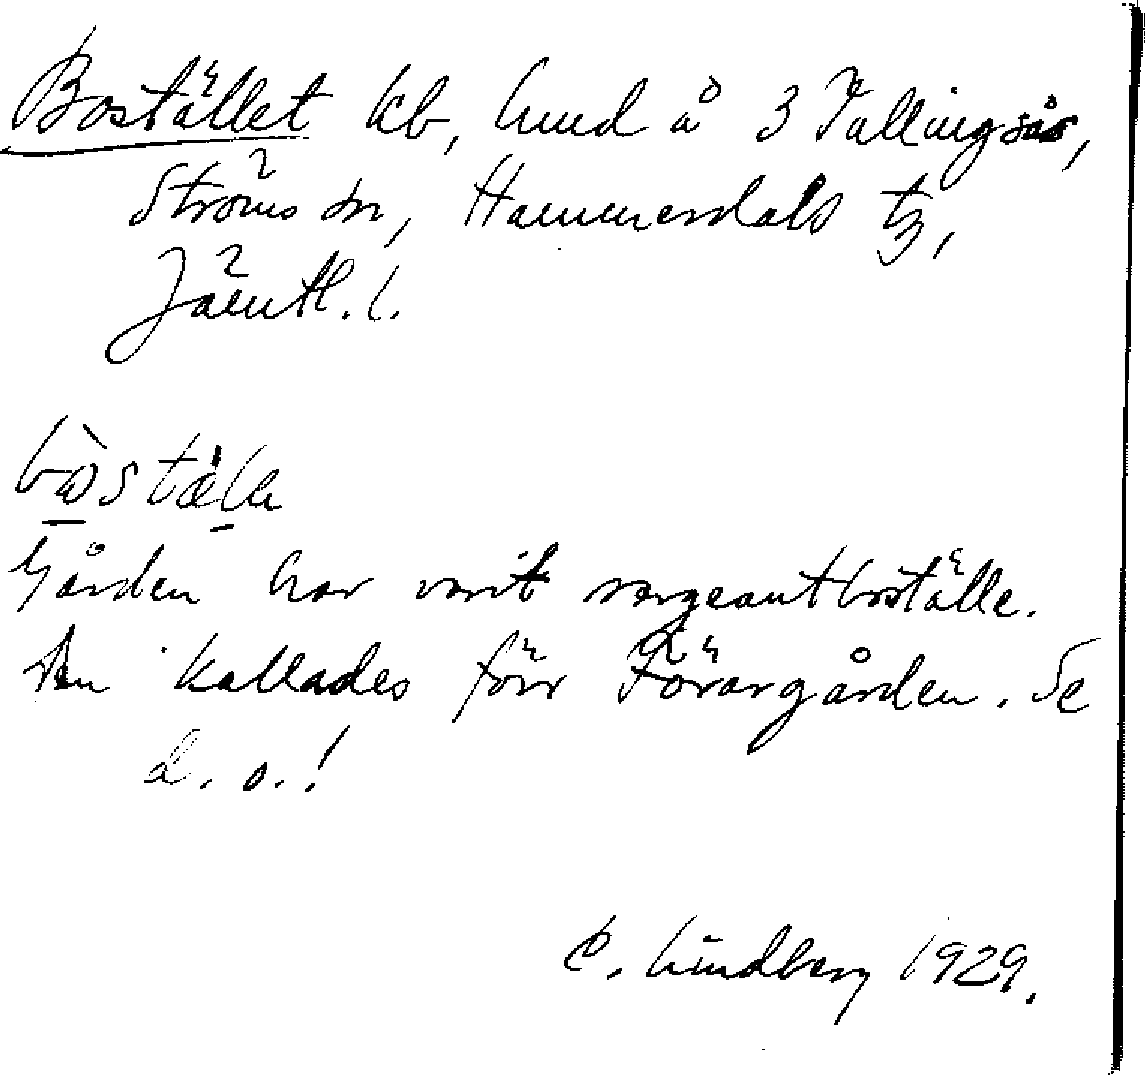 Bostället kb, hmd å 3 Tullingsås,
Ströms sn, Hammerdals tg,
Jämtl. l.
Gården har varit sergeantboställe.
Den kallades förr Förargården. Se
d. o.!
C. Lindberg 1929.